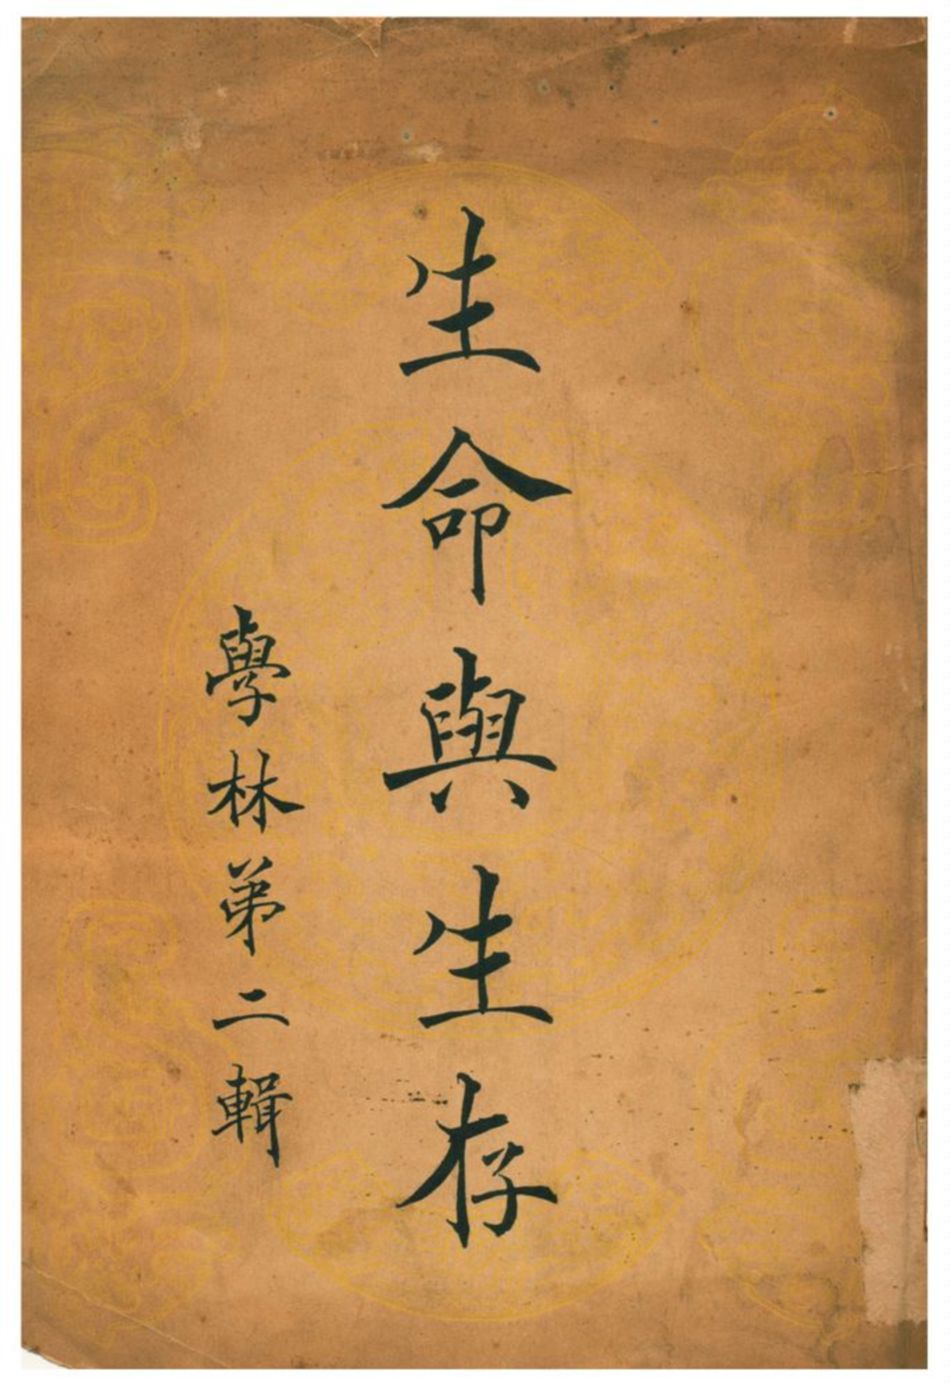 生命與生存
學林第二輯